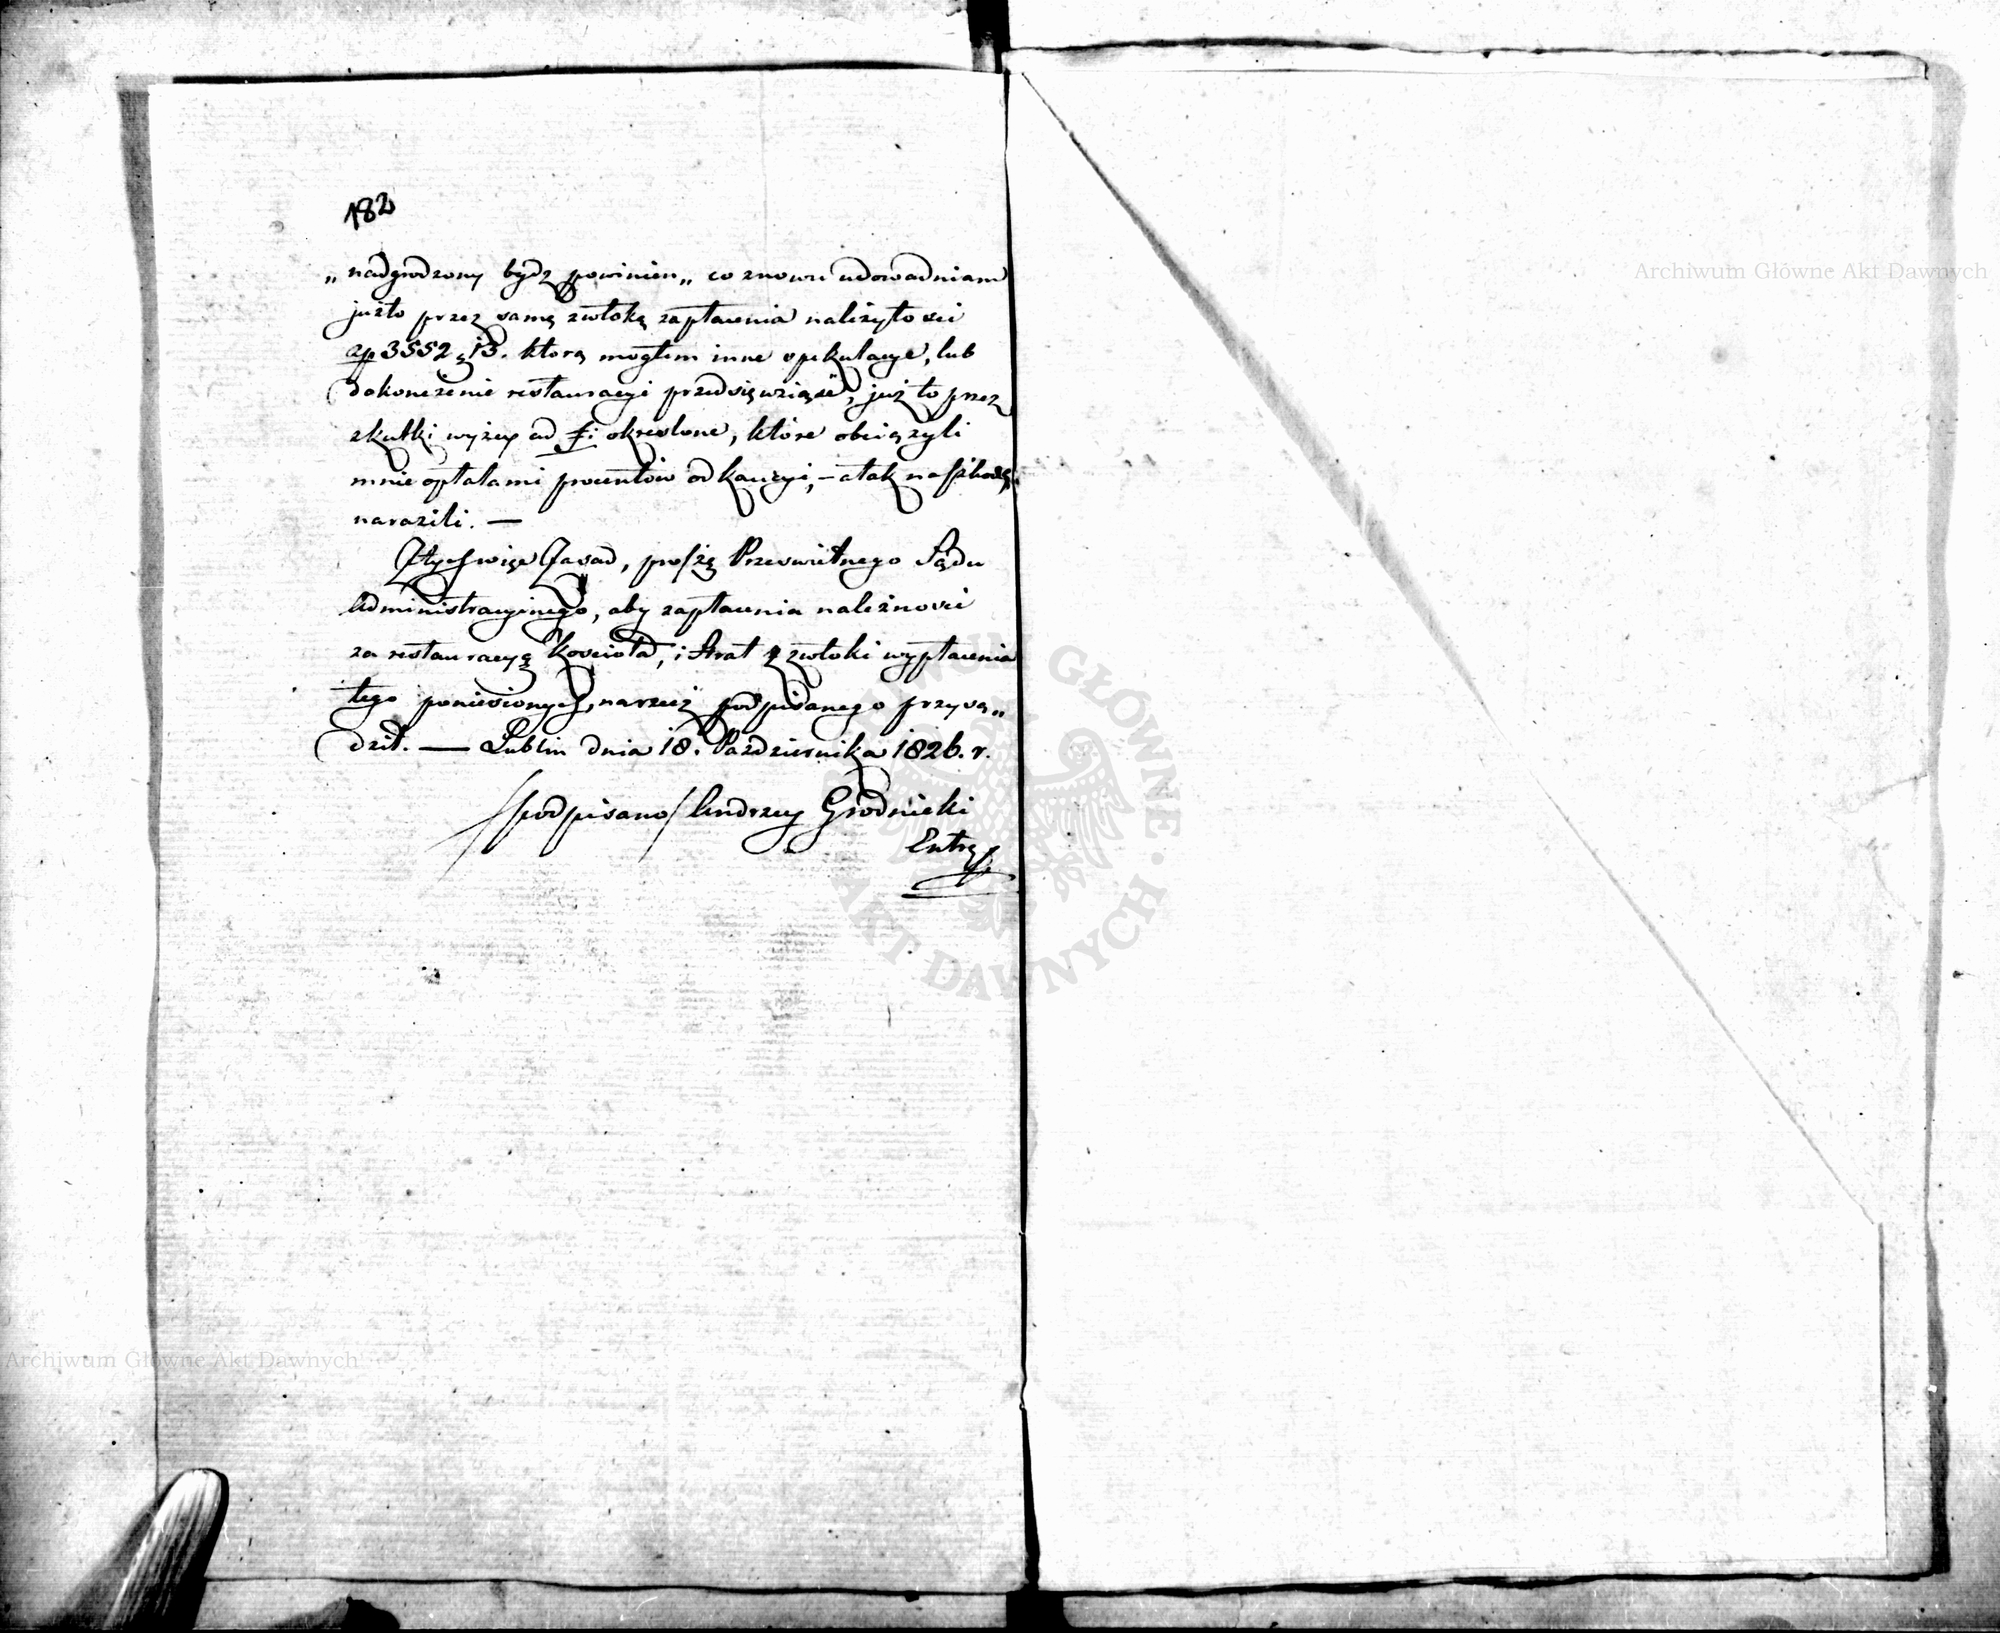 182
„nadgrodzony bydz powinien„ co znowu udowadniam
jużto przez samą zwłokę zapłacenia należytości
zp 3552 g 13. którą mogłem inne spekulacye, lub
dokończenie restauracyi przedsięwziąść, już to przez
skutki wyżey ad f: określone, które obciążyli
mnie opłatami procentów od kaucyi, – a tak na szkodę
narazili. —
Z tych więc Zasad, proszę Prześwietnego Sądu
Administracyinego, aby zapłacenia należności
za restauracyą Kościoła, i strat z zwłoki wypłacenia
tego poniesionych, na rzecz podpisanego przysą„
dził. — Lublin dnia 18. Października 1826. r.
/podpisano/ Andrzey Grodnicki
Entrp
Archiwum Główne Akt Dawnych
Archiwum Główne Akt Dawnych
ARCHIWUM GŁÓWNE AKT DAWNYCH